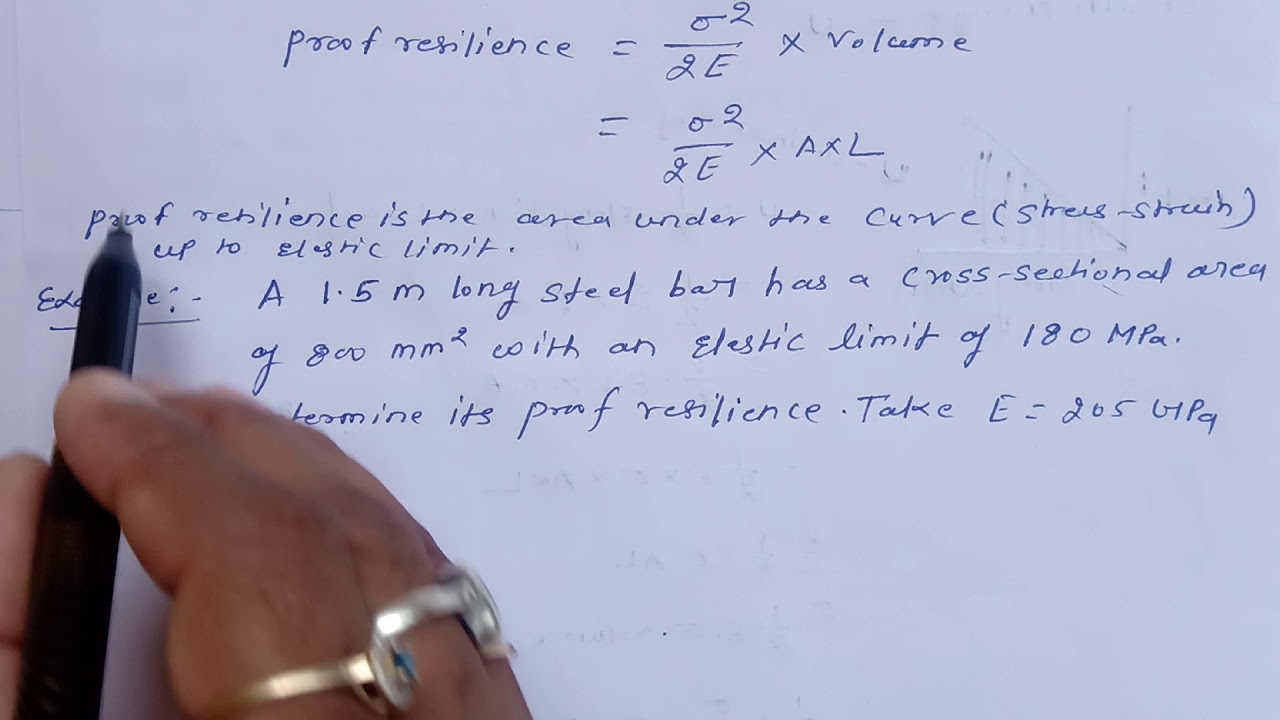 proof resilience = σ2/2E × Volume
= σ2/2E × A×L
proof resilience is the area under the curve (stress-strain)
up to elastic limit.
A 1.5 m long steel bar has a cross-sectional area
of 800 mm² with an elastic limit of 180 MPa.
its proof resilience. Take E = 205 GPa